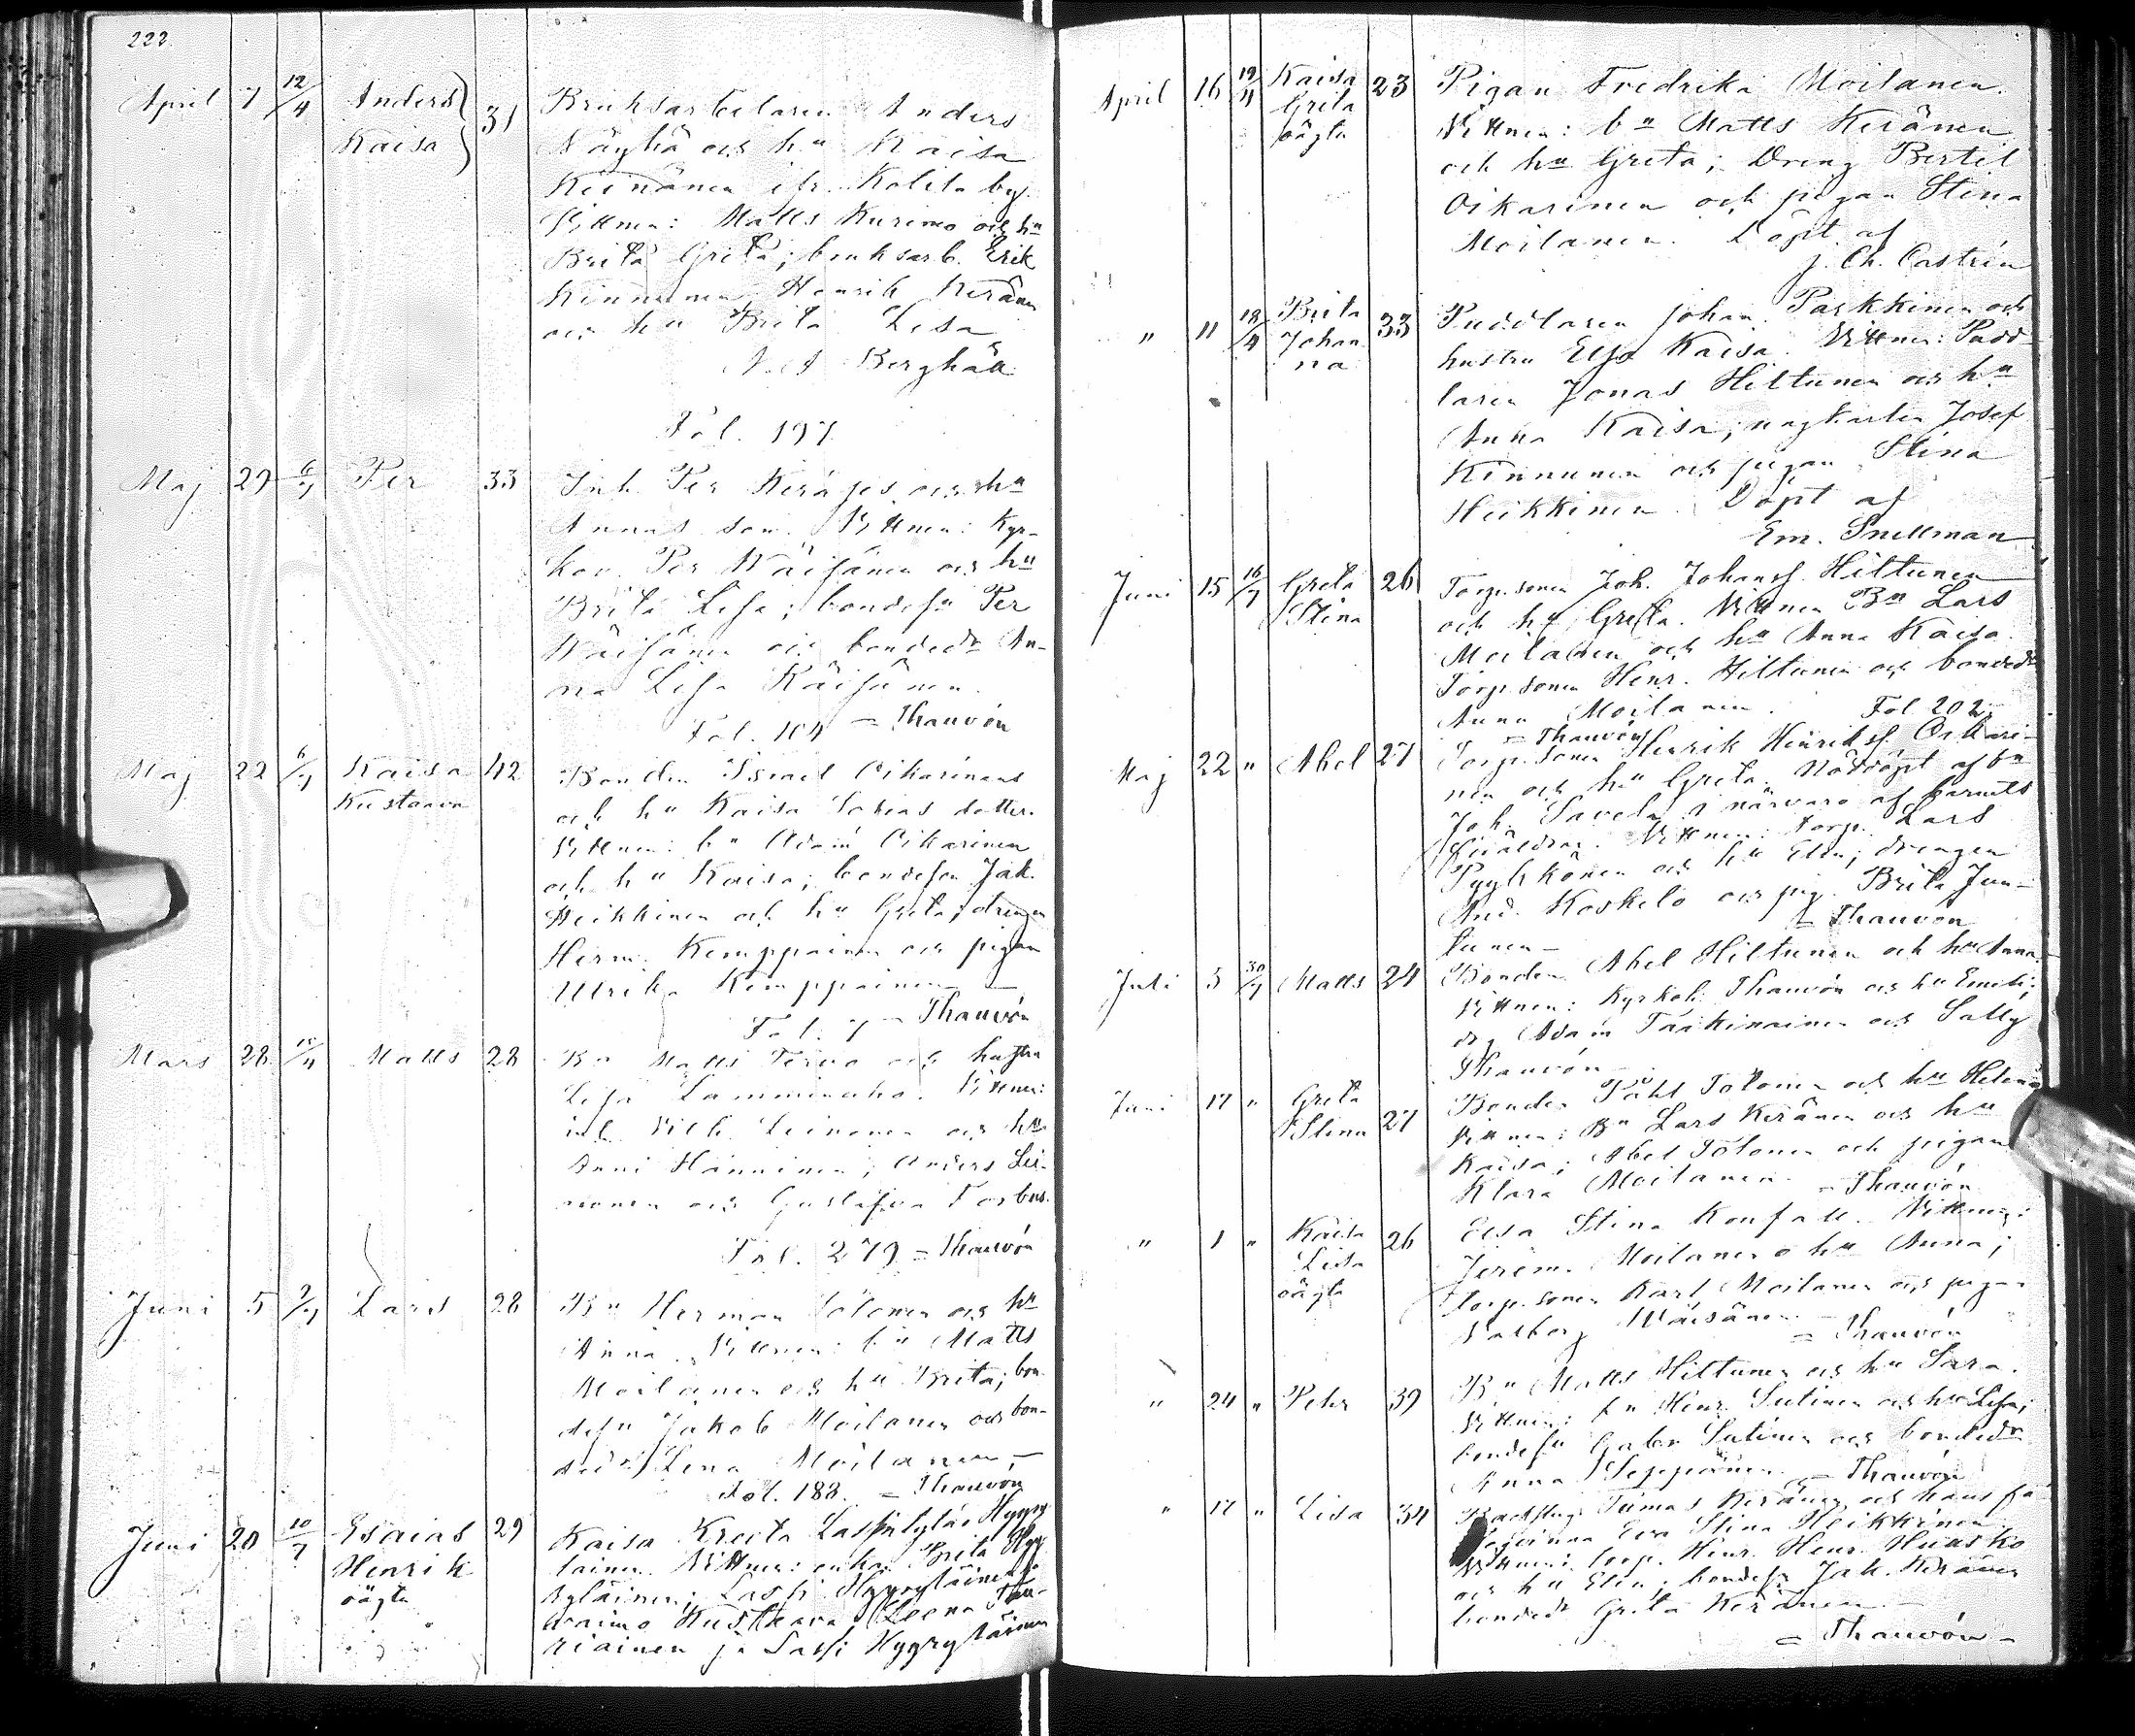 222.
April 7 12/4 Anders Kaisa 31 Bruksarbetaren Anders
och hu Kaisa
Keinänen ifr. Kolila by.
Vittnen: Matts Kurimo och hu
Brita Greta; bruksarb. Erik
Kinnunen, Henrik Keränen
och hu Brita Lisa
Berghäll
Fol. 197
Maj 29 6/7 Per 33 Inh. Per och hu
Annas son. Vittnen: Kyr-
kov. Per Wäisänen och hu
Brita Lisa; bondesn Per
Wäisänen och bondedr An-
na Lisa Räisänen.
Fol. 104 = Thauvón
Maj 22 6/7 Kaisa Kustaava 42 Bonden Israel Oikarinens
och hu Kaisa Tobias dotter.
Vittnen: bn Adam Oikarinen
och hu Kaisa; bondeson Jak.
Heikkinen och hu Greta; drengen
Herm. Kemppainen och pigan
Ulrika Kemppainen —
Fol. 7 — Thauvón
Mars 28 Matts 28 Bn Matts Tervo och hustru
Lisa Lamminaho. Vittnen:
inh. Vilh. Leinonen och hu
Anni Hänninen; Anders Lei-
nonen och Gustafva Forbus.
Fol. 279 = Thauvón
Juni 5 9/7 Lars 28 Bn Herman Tolonen och hu
Anna. Vittnen: bn Matts
Moilanen och hu Brita; bon-
desn Jakob Moilanen och bon-
dedr Lena Moilanen, —
Fol. 188. = Thauvón
Juni 20 10/7 Esaias Henrik oägta 29 Kaisa Kreita
Vittnen: enkan Brita Hyy-
ryläinen; Lassi Hyyryläinen;
vaimo Kustaava Leena
ja Lassi Hyyryläinen
April 16 19/4 Kaisa Greta oägta 23 Pigan Fredrika Moilanen.
Vittnen: bn Matts Keränen
och hu Greta; Dreng Bertil
Oikarinen och pigan Stina
Moilanen. Döpt af
J. Ch. Castrén
" 11 18/4 Brita Johanna 33 Puddlaren Johan Parkkinen och
hustru Elsa Kaisa. Vittnen: Pudd-
laren Jonas Hiltunen och hu
Anna Kaisa; Josef
Kinnunen och pigan Stina
Heikkinen. Döpt af
Em. Snellman
Juni 15 16/7 Greta Stina 26 Torp.sonen Joh. Johanss. Hiltunen
och hu Greta. Vittnen Bn Lars
Moilanen och hu Anna Kaisa.
Torp.sonen Henr. Hiltunen och bondedr
Anna Moilanen. Fol 202.
= Thauvón
Maj 22 " Abel 27 Torp.sonen Henrik Henrikss. Oikari-
nen och hu Greta. Nöddöpt af bn
Joh. Savela i närvaro af barnets
föräldrar. Vittnen: torp. Lars
Pyykkönen och hu Elin; drengen
And. Koskelo och pig. Brita Jun-
tunen — = Thauvón
Juli 3 30/7 Matts 24 Bonden Abel Hiltunen och hu Anna.
Vittnen: Kyrkoh. Thauvón och hu Emili;
dr. Adam och Sally
Thauvón —
Juni 17 " Greta Stina 27 Bonden Påhl Tolonen och hu Helena
Vittnen: Bn Lars Keränen och hu
Kaisa; Abel Tolonen och pigan
Klara Moilanen. = Thauvón
" 1 " Kaisa Lisa oägta 26 Elsa Stina Vittnen:
Jerem. Moilanen o hu Anna;
torp.sonen Karl Moilanen och pigan
Valborg Wäisänen. —
= Thauvón
" 24 " Pehr 39 Bn Matts Hiltunen och hu Sara.
Vittnen: bn Henr Sutinen och hu Lisa;
bondesn Gabr Sutinen och bondedr
Anna Seppänen. = Thauvón
" 17 " Lisa 34 Backstug. Tomas Keränen och hans
Eva Stina Heikkinen
Vittnen: torp. Henr. Henr.
och hu Elin; bondesn Jak. Keränen
bondedr Greta Keränen —
= Thauvón —